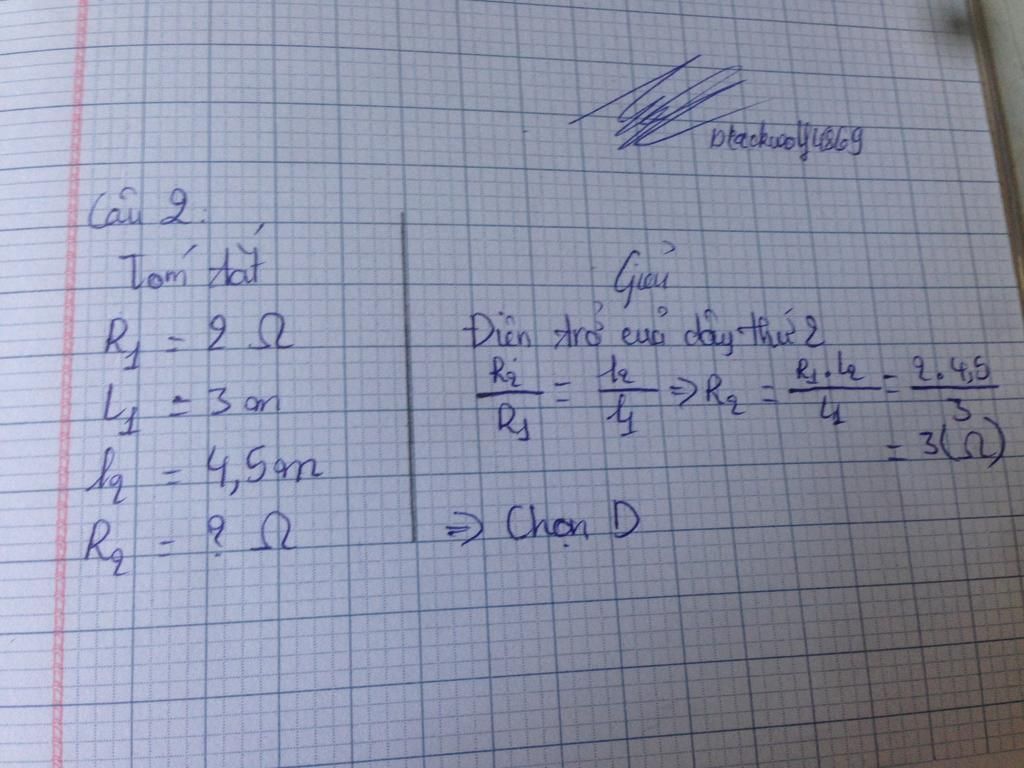 Câu 2:
Tóm tắt
R₁ = 2 Ω
L₁ = 3 m
l₂ = 4,5 m
R₂ = ? Ω
Giải
Điện trở của dây thứ 2
R₂/R₁ = l₂/l₁ => R₂ = R₁.l₂/L₁ = 2.4,5/3
= 3(Ω)
=> Chọn D